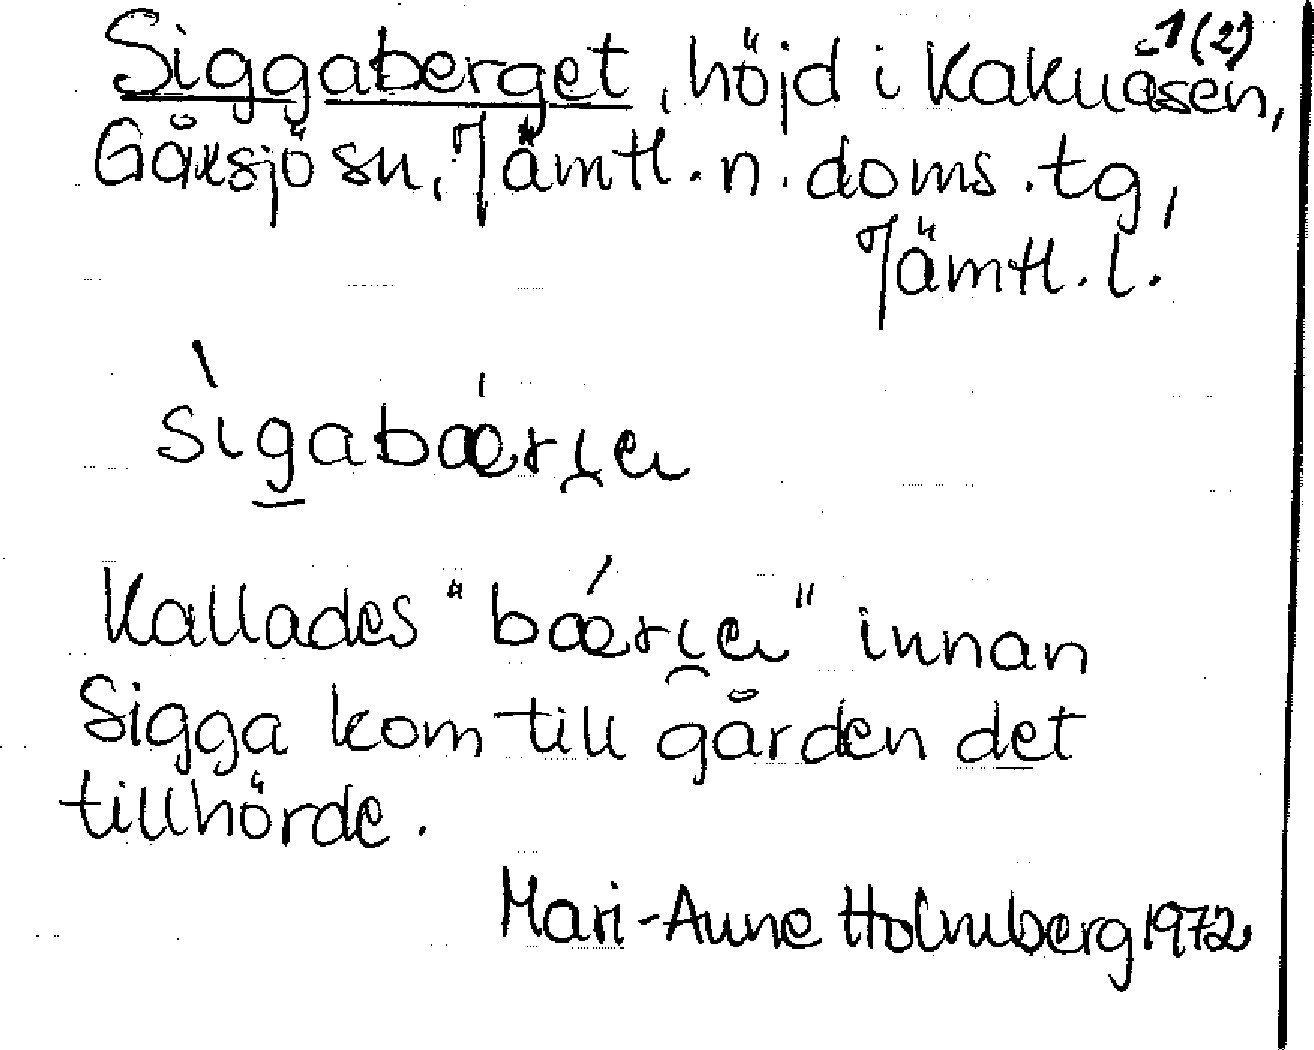 1(2)
Siggaberget, höjd i Kakuåsen,
Gåxsjö sn, Jämtl. n. doms. tg,
Jämtl. l.
sìgabǽrı̯eɩ
Kallades "bǽrı̯eɩ" innan
Sigga kom till gården det
tillhörde.
Mari-Anne Holmberg 1972